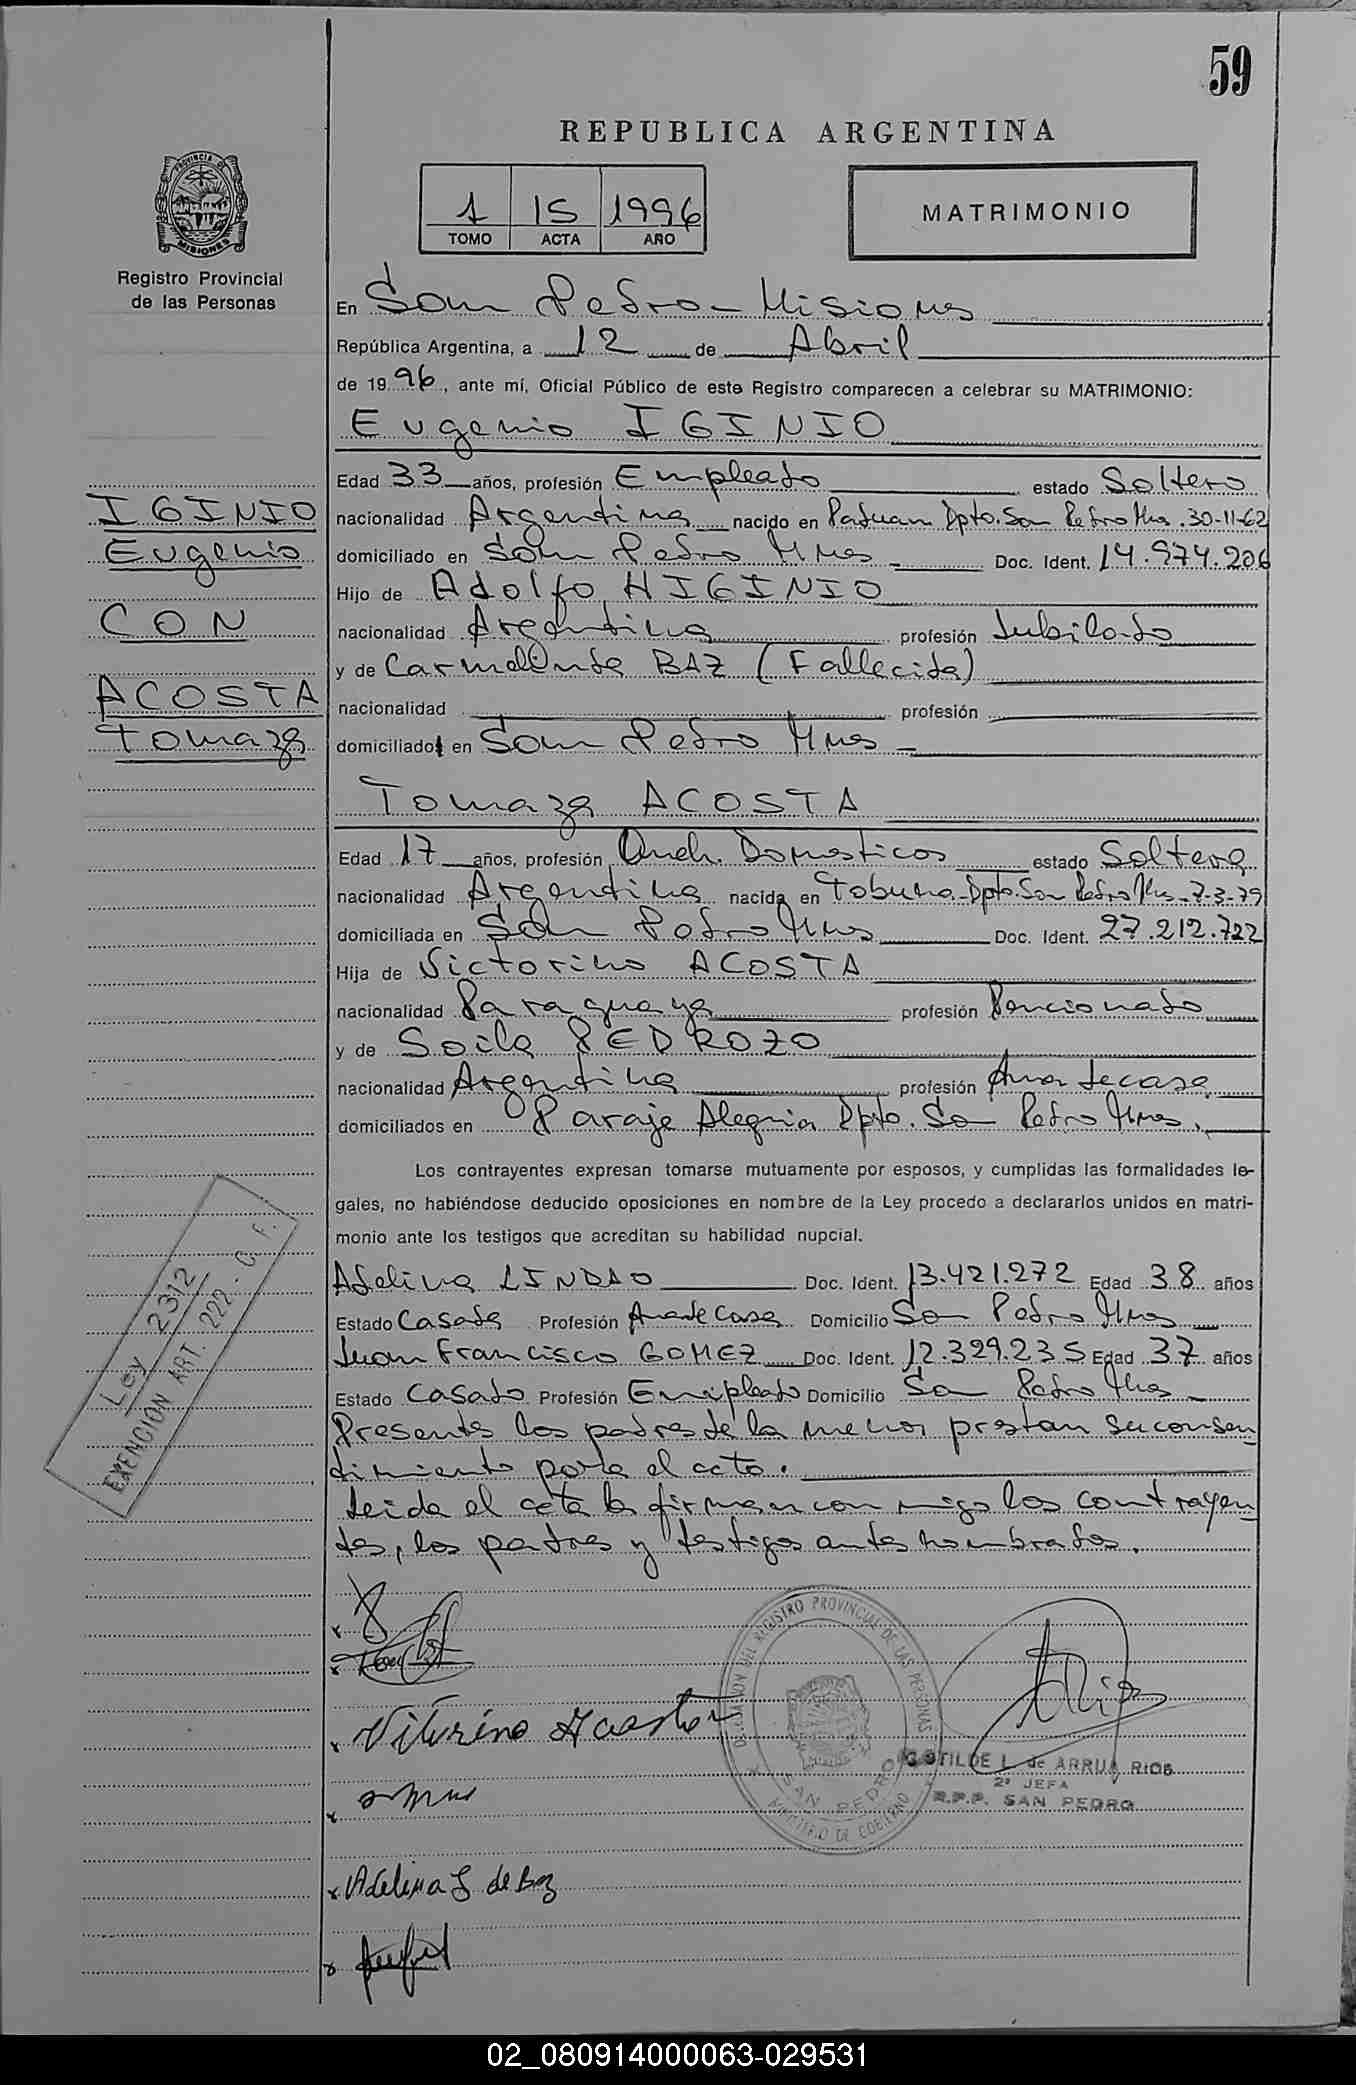 59
REPUBLICA ARGENTINA
1 15 1996
TOMO ACTA AÑO
MATRIMONIO
PROVINCIA DE MISIONES
Registro Provincial
de las Personas
En San Pedro - Misiones
República Argentina, a 12 de Abril
de 1996, ante mí, Oficial Público de este Registro comparecen a celebrar su MATRIMONIO:
Eugenio IGINIO
Edad 33 años, profesión Empleado estado Soltero
nacionalidad Argentina nacido en Dpto. San Pedro Mnes. 30-11-62
domiciliado en San Pedro Mnes Doc. Ident. 14.974.206
Hijo de Adolfo HIGINIO
nacionalidad Argentina profesión Jubilado
y de BAZ (Fallecida)
nacionalidad profesión
domiciliado en San Pedro Mnes
IGINIO
Eugenio
CON
ACOSTA
Tomaza
Tomaza ACOSTA
Edad 17 años, profesión Queh. Domesticos estado Soltera
nacionalidad Argentina nacida en Tobuna - Dpto. San Pedro Mns - 7-3-79
domiciliada en San Pedro Mnes Doc. Ident. 27.212.722
Hija de Victorino ACOSTA
nacionalidad Paraguaya profesión Pencionado
y de Soila PEDROZO
nacionalidad Argentina profesión Ama de casa
domiciliados en Paraje Alegria Dpto. San Pedro Mnes.
Los contrayentes expresan tomarse mutuamente por esposos, y cumplidas las formalidades le-
gales, no habiéndose deducido oposiciones en nombre de la Ley procedo a declararlos unidos en matri-
monio ante los testigos que acreditan su habilidad nupcial.
Adelina LINDAO Doc. Ident. 13.421.272 Edad 38 años
Estado Casada Profesión Ama de Casa Domicilio San Pedro Mnes
Juan Francisco GOMEZ Doc. Ident. 12.329.235 Edad 37 años
Estado Casado Profesión Empleado Domicilio San Pedro Mnes
Presente los padres de la menor prestan su consen
timiento para el acto.
Leida el acta la firman con migo los contrayen
tes, los padres y testigos antes nombrados.
Ley 2312
EXENCION ART. 222 - C. F.
Viturino Acosta
Adelina L de Baz
DELEGACION DEL REGISTRO PROVINCIAL DE LAS PERSONAS
SAN PEDRO
MINISTERIO DE GOBIERNO
CLOTILDE L. de ARRUA RIOS
2ª JEFA
R.P.P. SAN PEDRO
02_080914000063-029531